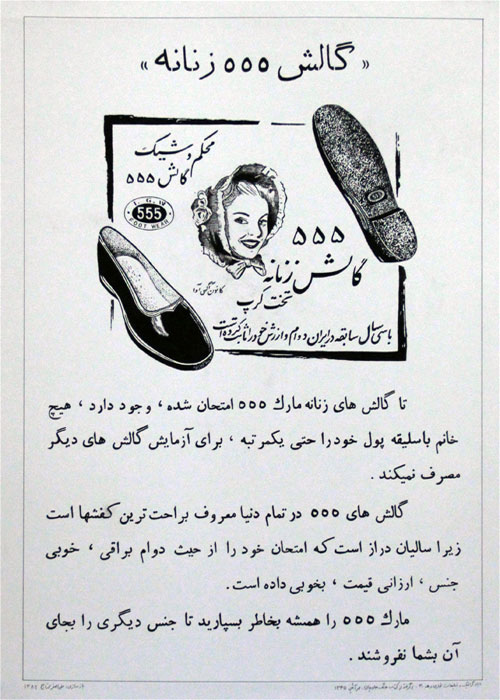 « گالش ۵۵۵ زنانه »
محکم و شیک
گالش ۵۵۵
I. G. W
555
FOOT WEAR
۵۵۵
گالش زنانه
تخت کرپ
کانون آگهی آوا
با سی سال سابقه در ایران دوام و ارزش خود را ثابت کرده است
تا گالش های زنانه مارك ۵۵۵ امتحان شده ، وجود دارد ، هیچ
خانم باسلیقه پول خودرا حتی یکمرتبه ، برای آزمایش گالش های دیگر
مصرف نمیکند .
گالش های ۵۵۵ در تمام دنیا معروف براحت ترین کفشها است
زیرا سالیان دراز است که امتحان خود را از حیث دوام براقی ، خوبی
جنس ، ارزانی قیمت ، بخوبی داده است .
مارك ۵۵۵ را همیشه بخاطر بسپارید تا جنس دیگری را بجای
آن بشما نفروشند .